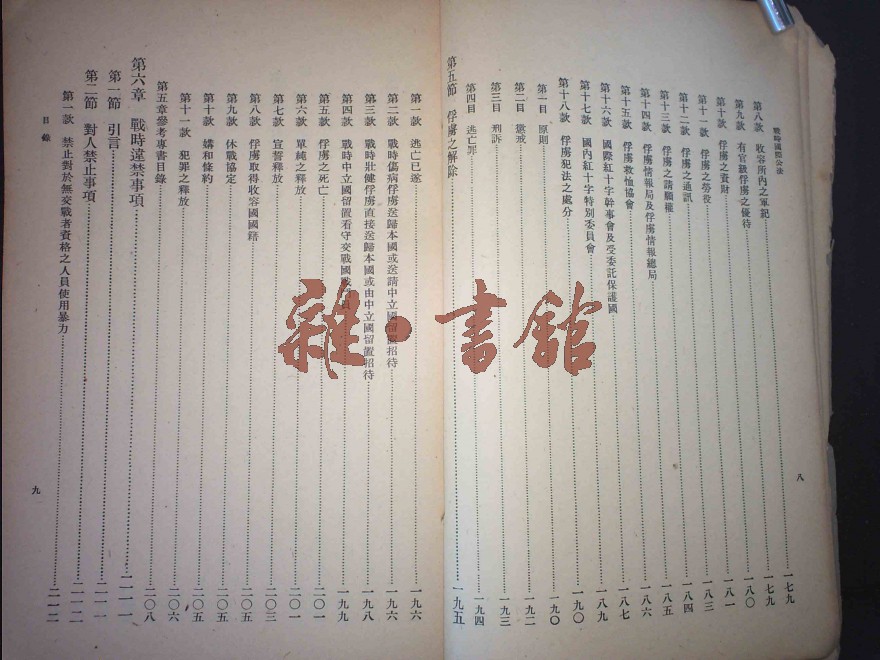 戰時國際公法
第八款 收容所內之軍紀 一七九
第九款 有官級俘虜之優待 一八〇
第十款 俘虜之資財 一八一
第十一款 俘虜之勞役 一八三
第十二款 俘虜之通訊 一八四
第十三款 俘虜之請願權 一八五
第十四款 俘虜情報局及俘虜情報總局 一八六
第十五款 俘虜救恤協會 一八七
第十六款 國際紅十字幹事會及受委託保護國 一八九
第十七款 國內紅十字特別委員會 一九〇
第十八款 俘虜犯法之處分 一九〇
第一目 原則 一九〇
第二目 懲戒 一九二
第三目 刑訴 一九三
第四目 逃亡罪 一九四
第五節 俘虜之解除 一九五
八
第一款 逃亡已遂 一九六
第二款 戰時傷病俘虜送歸本國或送請中立國留置招待 一九六
第三款 戰時壯健俘虜直接送歸本國或由中立國留置招待 一九八
第四款 戰時中立國留置看守交戰國戰 一九九
第五款 俘虜之死亡 二〇一
第六款 單純之釋放 二〇一
第七款 宣誓釋放 二〇三
第八款 俘虜取得收容國國籍 二〇五
第九款 休戰協定 二〇五
第十款 媾和條約 二〇五
第十一款 犯罪之釋放 二〇六
第五章參考專書目錄 二〇八
第六章 戰時違禁事項 二一一
第一節 引言 二一一
第二節 對人禁止事項 二一二
第一款 禁止對於無交戰者資格之人員使用暴力 二一二
目錄
九
雜·書館